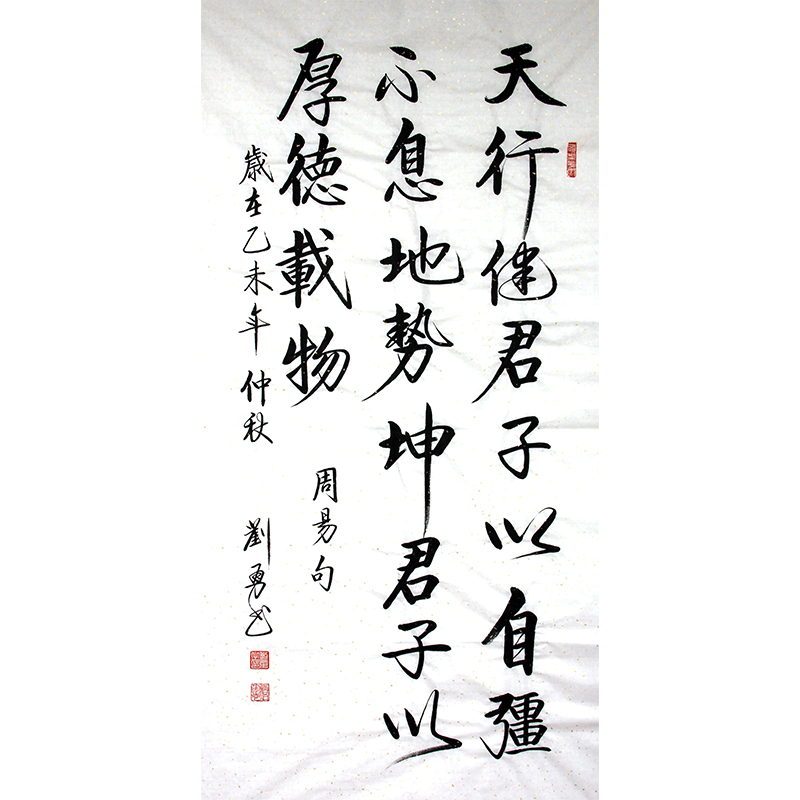 天行健君子以自彊
不息地勢坤君子以
厚德載物
周易句
歲在乙未年仲秋
劉勇书